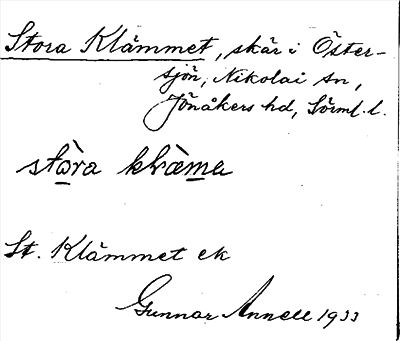 Stora Klämmet, skär i Öster-
sjön, Nikolai sn,
Jönåkers hd, Sörml. l.
stɷ̀ra klræ̀ma
St. Klämmet ek
Gunnar Annell 1933